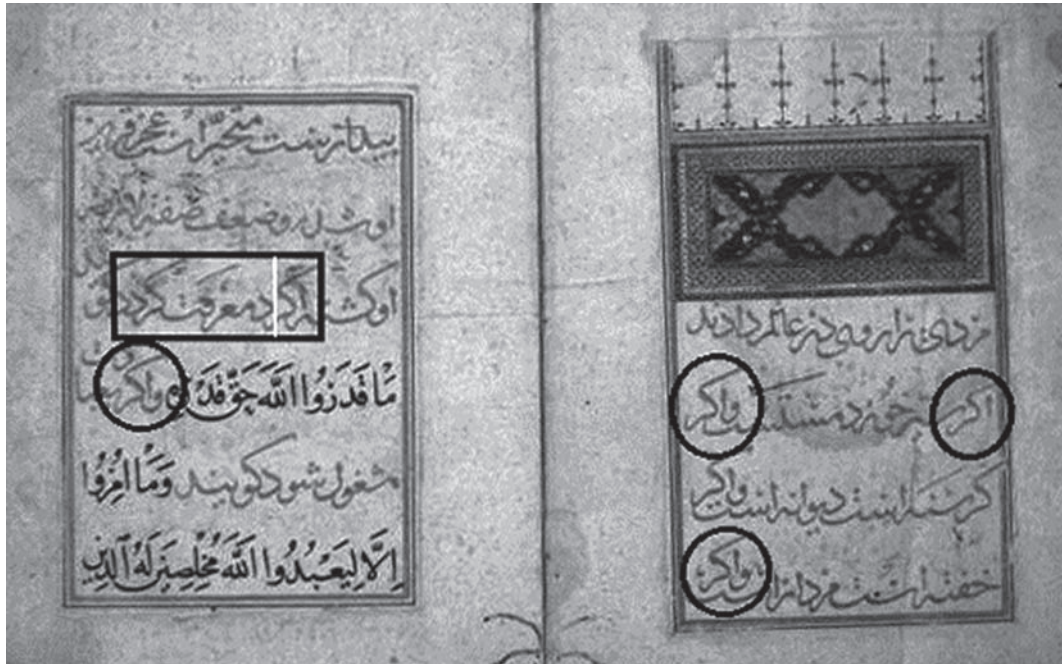 روی در عالم دادند
اکر خورد مست است واکر
کرسنه است دیوانه است واکر
خفته است مردار است واکر
بیدارست متحیر است عجز قرین
او شد و ضعف صفة
او کشت اگر کرد معرفت کردد
مَا قَدَرُوا اللَّهَ حَقَّ قَدْرِهِ واکر
مشغول شود کویند وَمَا اُمِرُوا
اِلَّا لِيَعْبُدُوا اللَّهَ مُخْلِصِينَ لَهُ الدِّينَ